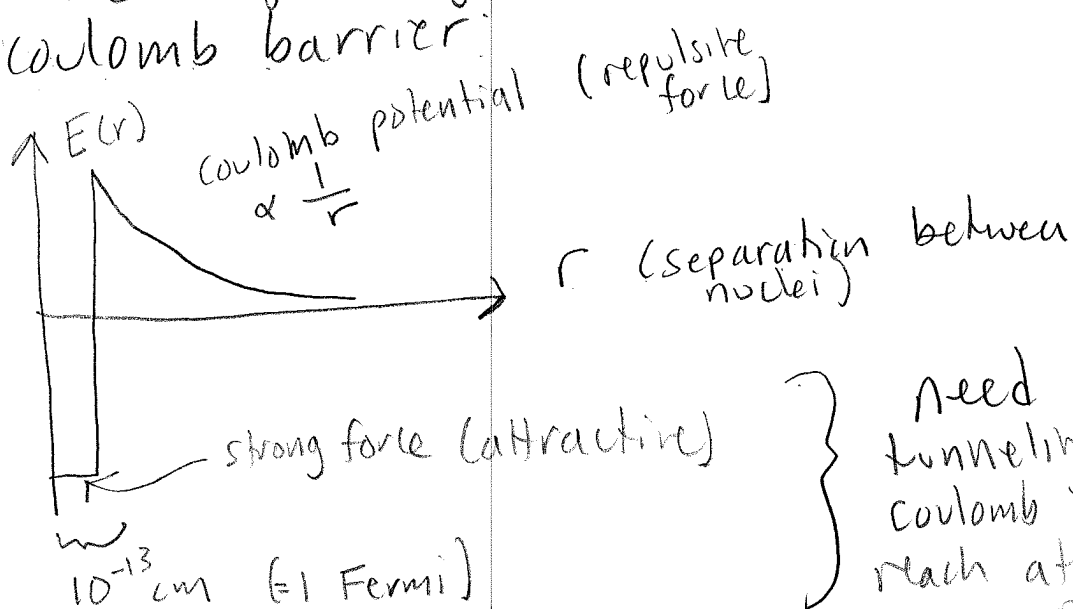 coulomb barrier:
E(r)
coulomb potential (repulsite
force)
∝ 1/r
r (separation between
nuclei)
strong force (attractive)
10⁻¹³ cm (=1 Fermi)
need
coulomb
reach